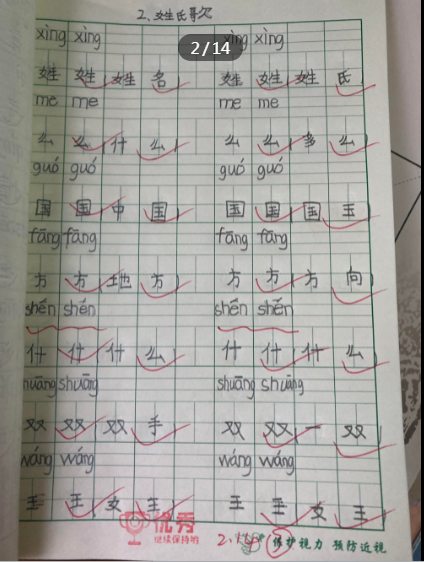 2、姓氏歌
2/14
xìng xìng xìng xìng
姓 姓 姓 名 姓 姓 姓 氏
me me me me
么 么 什 么 么 么 多 么
guó guó guó guó
国 国 中 国 国 国 国 王
fāng fāng fāng fāng
方 方 地 方 方 方 方 向
shén shén shén shén
什 什 什 么 什 什 什 么
huāng shuāng shuāng shuāng
双 双 双 手 双 双 一 双
wáng wáng wáng wáng
王 王 女 王 王 王 女 王
优秀
继续保持哟
保护视力 预防近视